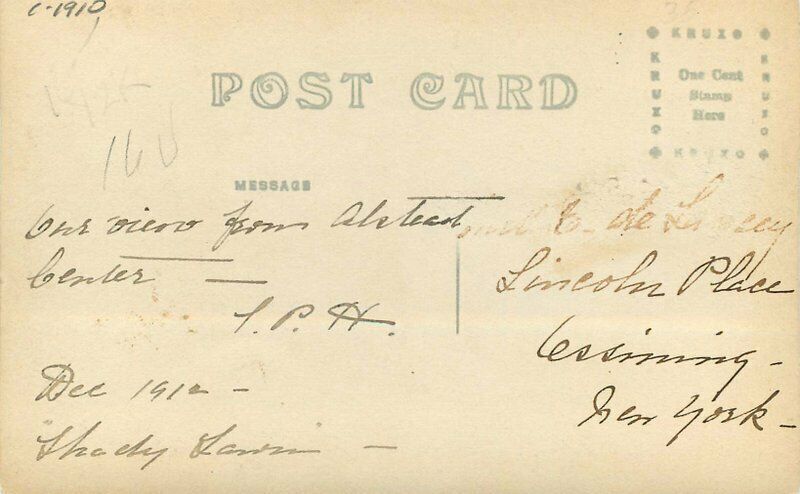 c-1910
POST CARD
KRUXO
KRUXO
KRUXO
KRUXO
One Cent
Stamp
Here
160
MESSAGE
Our view from Alstead
Center —
S. P. H.
Dec 1912 —
"Shady Lawn" —
E. de
Lincoln Place
Ossining –
New York –